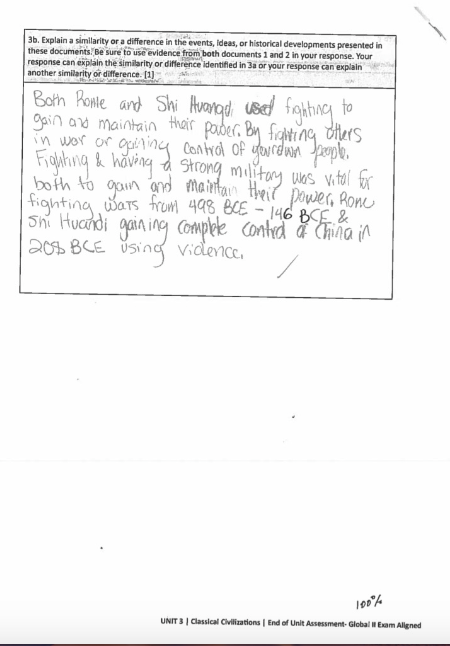 3b. Explain a similarity or a difference in the events, ideas, or historical developments presented in
these documents. Be sure to use evidence from both documents 1 and 2 in your response. Your
response can explain the similarity or difference identified in 3a or your response can explain
another similarity or difference. [1]
Both Rome and Shi Huangdi used fighting to
gain and maintain their power. By fighting others
in war or gaining control of your own people.
Fighting & having a strong military was vital for
both to gain and maintain their power. Rome
fighting wars from 498 BCE - 146 BCE &
Shi Huandi gaining complete control of China in
208 BCE using violence.
100%
UNIT 3 | Classical Civilizations | End of Unit Assessment- Global II Exam Aligned